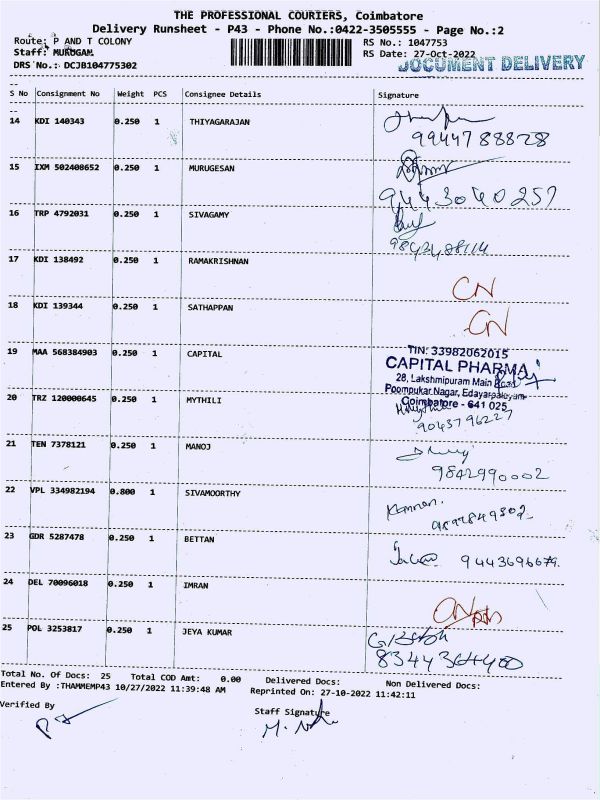 THE PROFESSIONAL COURIERS, Coimbatore
Delivery Runsheet - P43 - Phone No.:0422-3505555 - Page No.:2
Route: P AND T COLONY
RS No.: 1047753
Staff: MURUGAN
RS Date: 27-Oct-2022
DRS No.: DCJB104775302
DOCUMENT DELIVERY
S No Consignment No Weight PCS Consignee Details Signature
14 KDI 140343 0.250 1 THIYAGARAJAN
99447 88828
15 IXM 502408652 0.250 1 MURUGESAN
9443040257
16 TRP 4792031 0.250 1 SIVAGAMY
17 KDI 138492 0.250 1 RAMAKRISHNAN
CN
18 KDI 139344 0.250 1 SATHAPPAN
CN
19 MAA 568384903 0.250 1 CAPITAL
TIN: 33982062015
CAPITAL PHARMA
28, Lakshmipuram Main Road
Poompukar Nagar, Edayarpalayam
Coimbatore - 641 025
20 TRZ 120000645 0.250 1 MYTHILI
9043796227
21 TEN 7378121 0.250 1 MANOJ
9842990002
22 VPL 334982194 0.800 1 SIVAMOORTHY
Kannan.
23 GDR 5287478 0.250 1 BETTAN
9443696679.
24 DEL 70096018 0.250 1 IMRAN
25 POL 3253817 0.250 1 JEYA KUMAR
8344364400
Total No. Of Docs: 25 Total COD Amt: 0.00 Delivered Docs: Non Delivered Docs:
Entered By :THAMMEMP43 10/27/2022 11:39:48 AM Reprinted On: 27-10-2022 11:42:11
Verified By
Staff Signature